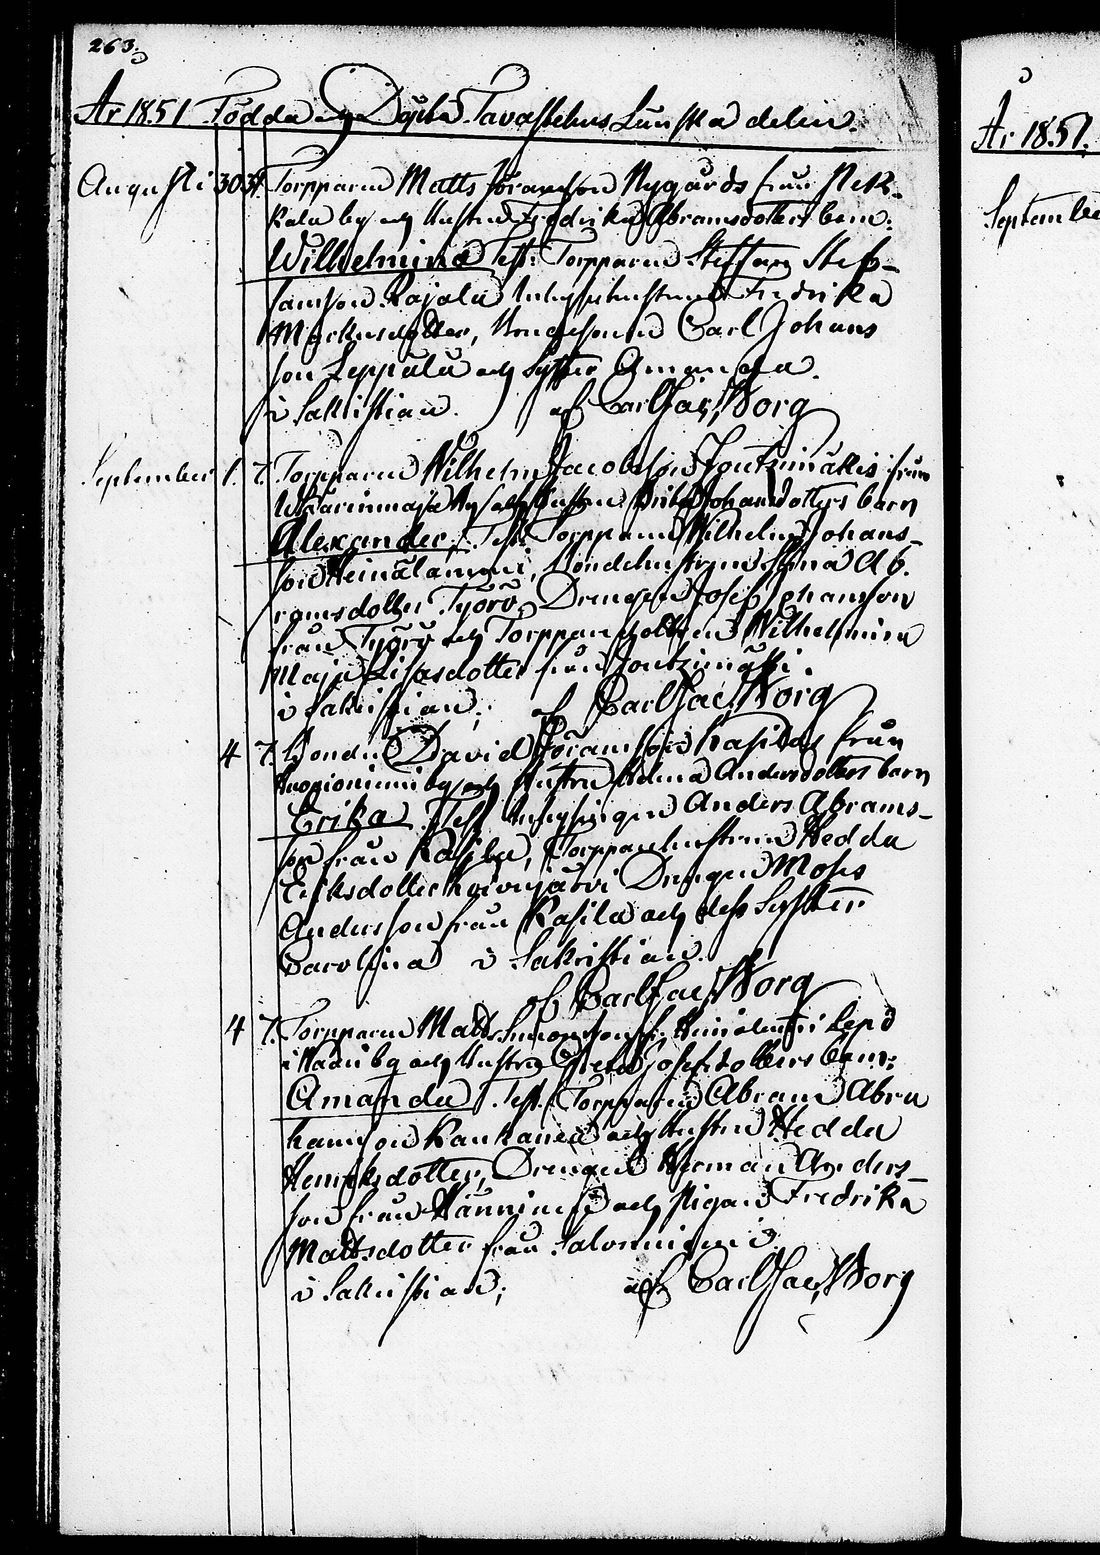 263.
År 1851 Födda och Döpta Tavastehus Länska delen.
Augusti 30 31 Torpparen Matts Göransson Nygårds från
by och Hustrun Fredrika Abramsdotters barn:
Wilhelmina Test: Torpparen Steffan Stef-
fansson Rajala Inhyseshustrun Fredrika
Markusdotter, Bondesonen Carl Johans
son Leppälä och Syster Amanda.
i Sakristian. af Carl Jac. Worg
September 1. 7. Torpparen Wilhelm Jacobsson Joutzimäkis från
by och Hustrun Brita Johansdotters barn
Alexander, Test: Torpparen Wilhelm Johans-
son Heinälammi, Bondehustrun Stina Ab.
ramsdotter Työrö, Drengen Josef Johansson
från Työrö och Torppardottren Wilhelmina
Maja Lisasdotter från Joutzimäki.
i Sakristian; af Carl Jac. Worg
4 7. Bonden David Göransson Kasilas från
Kuogioniemi by och Hustrun Helena Andersdotters barn
Erika. Test Inhysingen Anders Abrams-
son från Kasila, Torpparehustrun Hedda
Eriksdotter Koivujärvi Drengen Moses
Andersson från Kasila och dess Syster
Carolina i Sakristian.
af Carl Jac. Worg
4 7. Torpparen Matts Simonsson
by och Hustrun Greta Josefsdotters barn:
Amanda Test. Torpparen Abram Abra
hamsson Kankanen och Hustrun Hedda
Henriksdotter, Drengen Herman Anders-
son från Hänninen och Pigan Fredrika
Mattsdotter från Salonniemi
i Sakristian; af Carl Jac. Worg
År 1851.
September